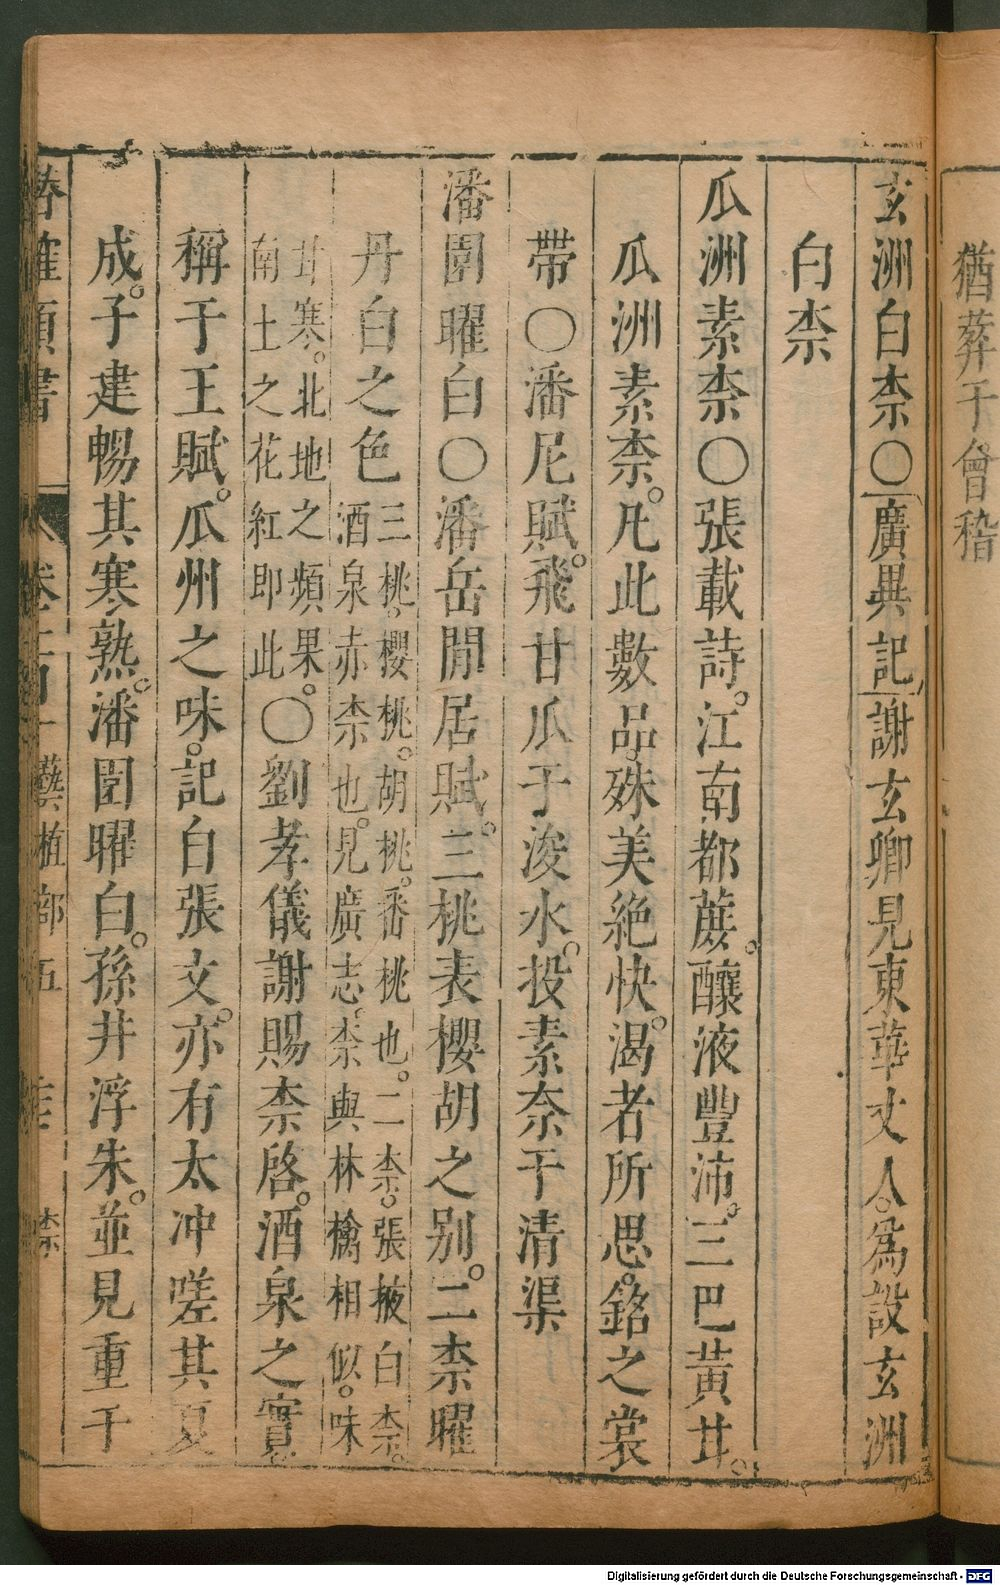 猶葬于會稽
玄洲白柰○廣異記謝玄卿見東華丈人。爲設玄洲
白柰
瓜洲素柰○張載詩。江南都蔗。釀液豐沛。三巴黃甘。
瓜洲素柰。凡此數品。殊美絕快。渴者所思。銘之裳
帶○潘尼賦。飛甘瓜于浚水。投素奈于清渠
潘園曜白○潘岳閒居賦。三桃表櫻胡之别。二柰曜
丹白之色三桃。櫻桃。胡桃。番桃也。二柰。張掖白柰。
酒泉赤柰也。見廣志。柰與林檎相似。味
甘寒。北地之頻果。
南土之花紅即此○劉孝儀謝賜柰啓。酒泉之實
稱于王賦。瓜州之味。記白張文。亦有太冲嗟其夏
成。子建暢其寒熟。潘園曜白。孫井浮朱。並見重于
類書 卷 藝植部五 柰
Digitalisierung gefördert durch die Deutsche Forschungsgemeinschaft - DFG